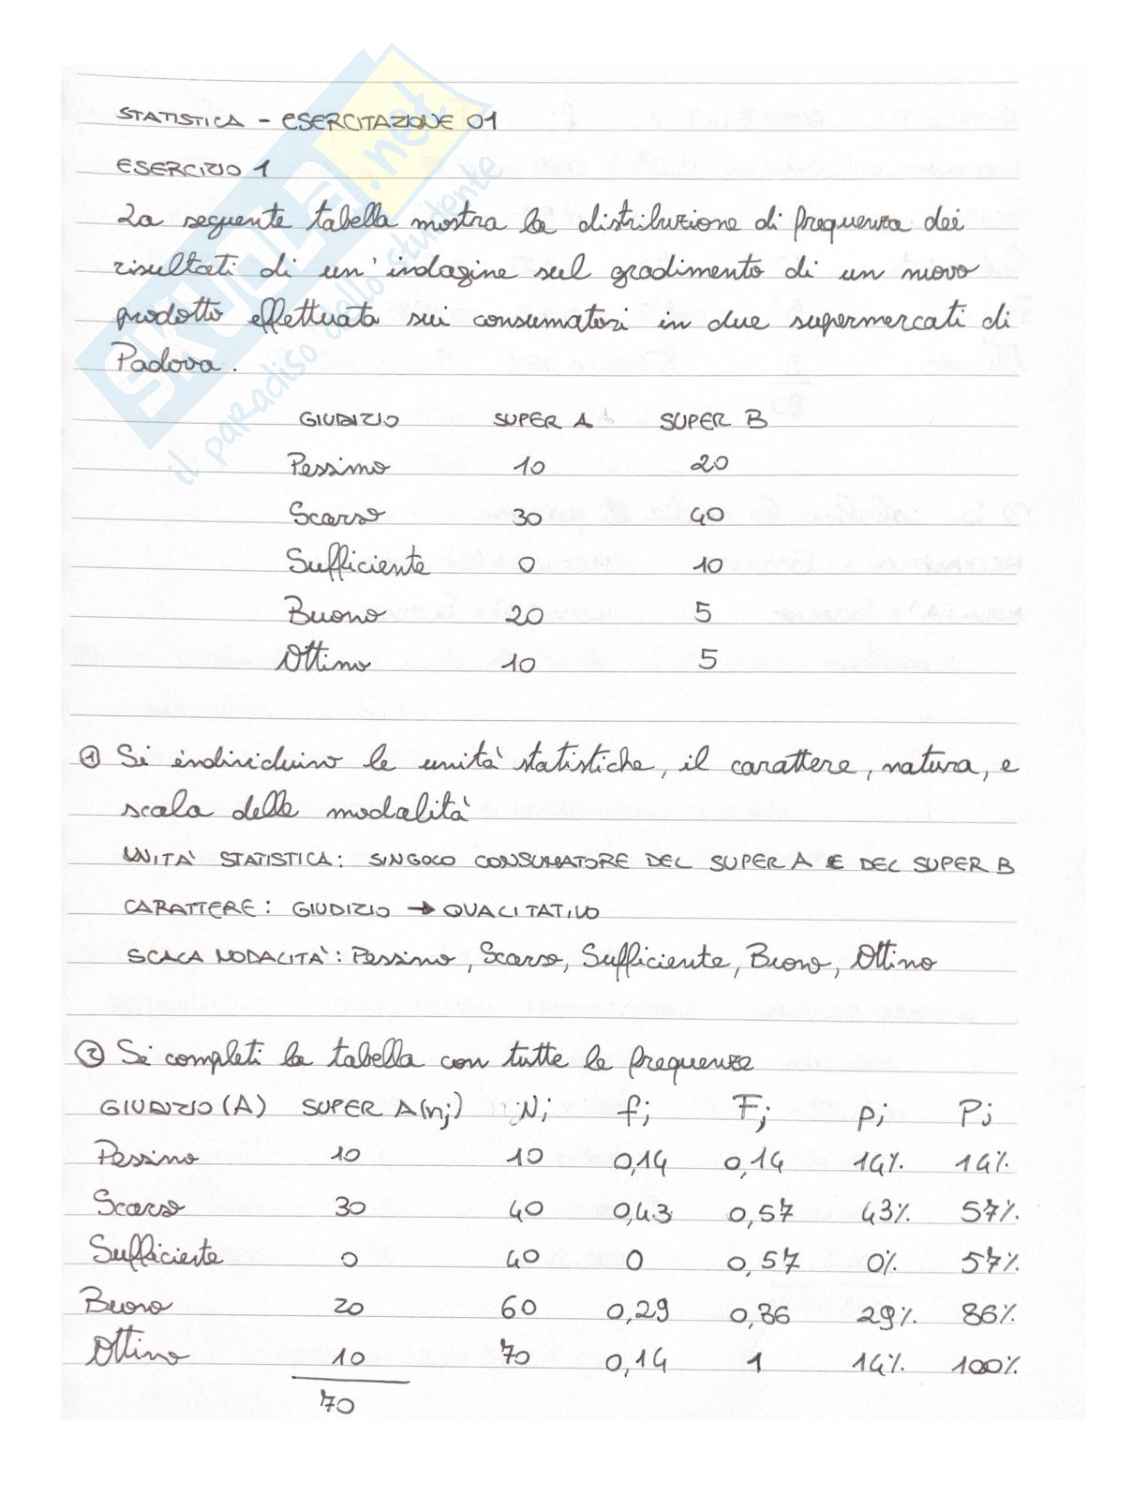 STATISTICA - ESERCITAZIONE 01
ESERCIZIO 1
La seguente tabella mostra la distribuzione di frequenza dei
risultati di un'indagine sul gradimento di un nuovo
prodotto effettuata sui consumatori in due supermercati di
Padova.
GIUDIZIO SUPER A SUPER B
Pessimo 10 20
Scarso 30 40
Sufficiente 0 10
Buono 20 5
Ottimo 10 5
① Si individuino le unità statistiche, il carattere, natura, e
scala delle modalità
UNITA' STATISTICA: SINGOLO CONSUMATORE DEL SUPER A E DEL SUPER B
CARATTERE: GIUDIZIO → QUALITATIVO
SCALA MODALITÀ: Pessimo, Scarso, Sufficiente, Buono, Ottimo
② Si completi la tabella con tutte le frequenze
GIUDIZIO (A) SUPER A (nj) Nj fj Fj pj Pj
Pessimo 10 10 0,14 0,14 14% 14%
Scarso 30 40 0,43 0,57 43% 57%
Sufficiente 0 40 0 0,57 0% 57%
Buono 20 60 0,29 0,86 29% 86%
Ottimo 10 70 0,14 1 14% 100%
70
SKUOLA.net
il paradiso dello studente